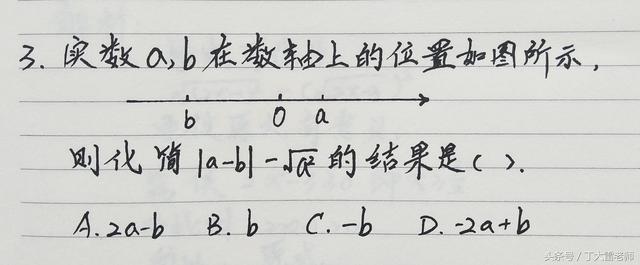 3. 实数a,b在数轴上的位置如图所示,
b 0 a
则化简|a-b|-√a²的结果是( ).
A.2a-b B.b C.-b D.-2a+b
头条号/丁大雷老师